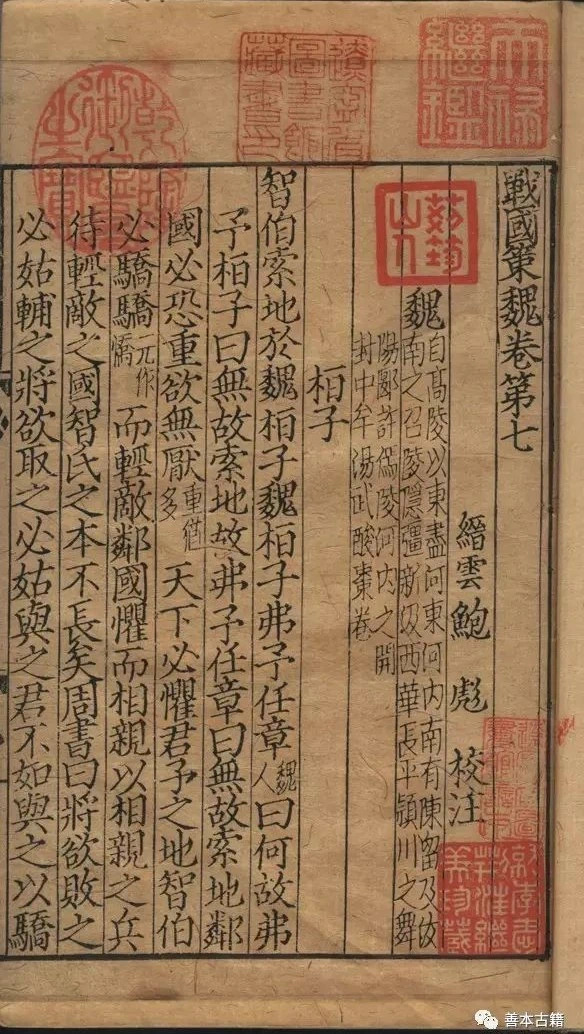 戰國策魏卷第七
縉雲鮑彪校注
魏
自高陵以東盡河東河內南有陳留及汝
南之召陵㶏彊新汲西華長平潁川之舞
陽郾許傿陵河內之開
封中牟湯武酸棗卷
栢子
智伯索地於魏栢子魏栢子弗予任章魏人曰何故弗
予栢子曰無故索地故弗予任章曰無故索地鄰
國必恐重欲無厭重猶多天下必懼君予之地智伯
必驕驕元作憍而輕敵鄰國懼而相親以相親之兵
待輕敵之國智氏之本不長矣周書曰將欲敗之
必姑輔之將欲取之必姑與之君不如與之以驕
乾隆御覽之寶
天祿繼鑑
圖書館藏書印
善本古籍